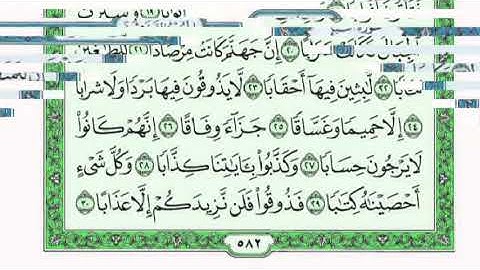 سَرَابًا ۝٢٠ إِنَّ جَهَنَّمَ كَانَتْ مِرْصَادًا ۝٢١ لِلطَّاغِينَ
مَـَٔابًا ۝٢٢ لَّٰبِثِينَ فِيهَآ أَحْقَابًا ۝٢٣ لَّا يَذُوقُونَ فِيهَا بَرْدًا وَلَا شَرَابًا
۝٢٤ إِلَّا حَمِيمًا وَغَسَّاقًا ۝٢٥ جَزَآءً وِفَاقًا ۝٢٦ إِنَّهُمْ كَانُوا۟
لَا يَرْجُونَ حِسَابًا ۝٢٧ وَكَذَّبُوا۟ بِـَٔايَٰتِنَا كِذَّابًا ۝٢٨ وَكُلَّ شَىْءٍ
أَحْصَيْنَٰهُ كِتَٰبًا ۝٢٩ فَذُوقُوا۟ فَلَن نَّزِيدَكُمْ إِلَّا عَذَابًا ۝٣٠
٥٨٢